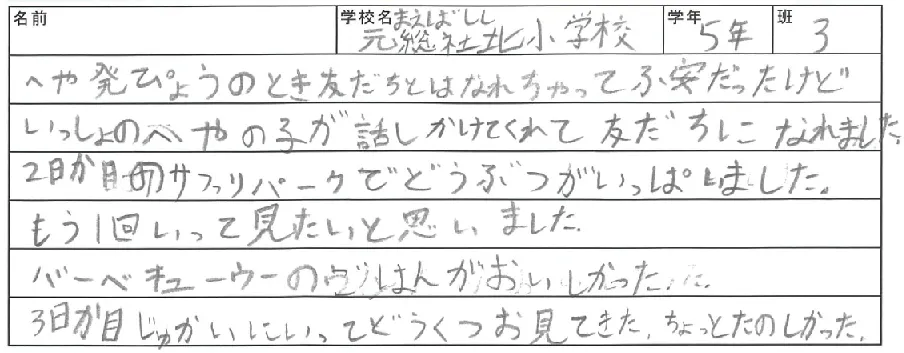 名前 学校名 まえばしし 元総社北小学校 学年 5年 班 3
へや発ぴょうのとき友だちとはなれちゃってふ安だったけど
いっしょのへやの子が話しかけてくれて友だちになれました。
2日か目のサファリパークでどうぶつがいっぱいいました。
もう1回いって見たいと思いました。
バーベキューウーのごはんがおいしかった。
3日か目じゅかいにいってどうくつお見てきた。ちょっとたのしかった。